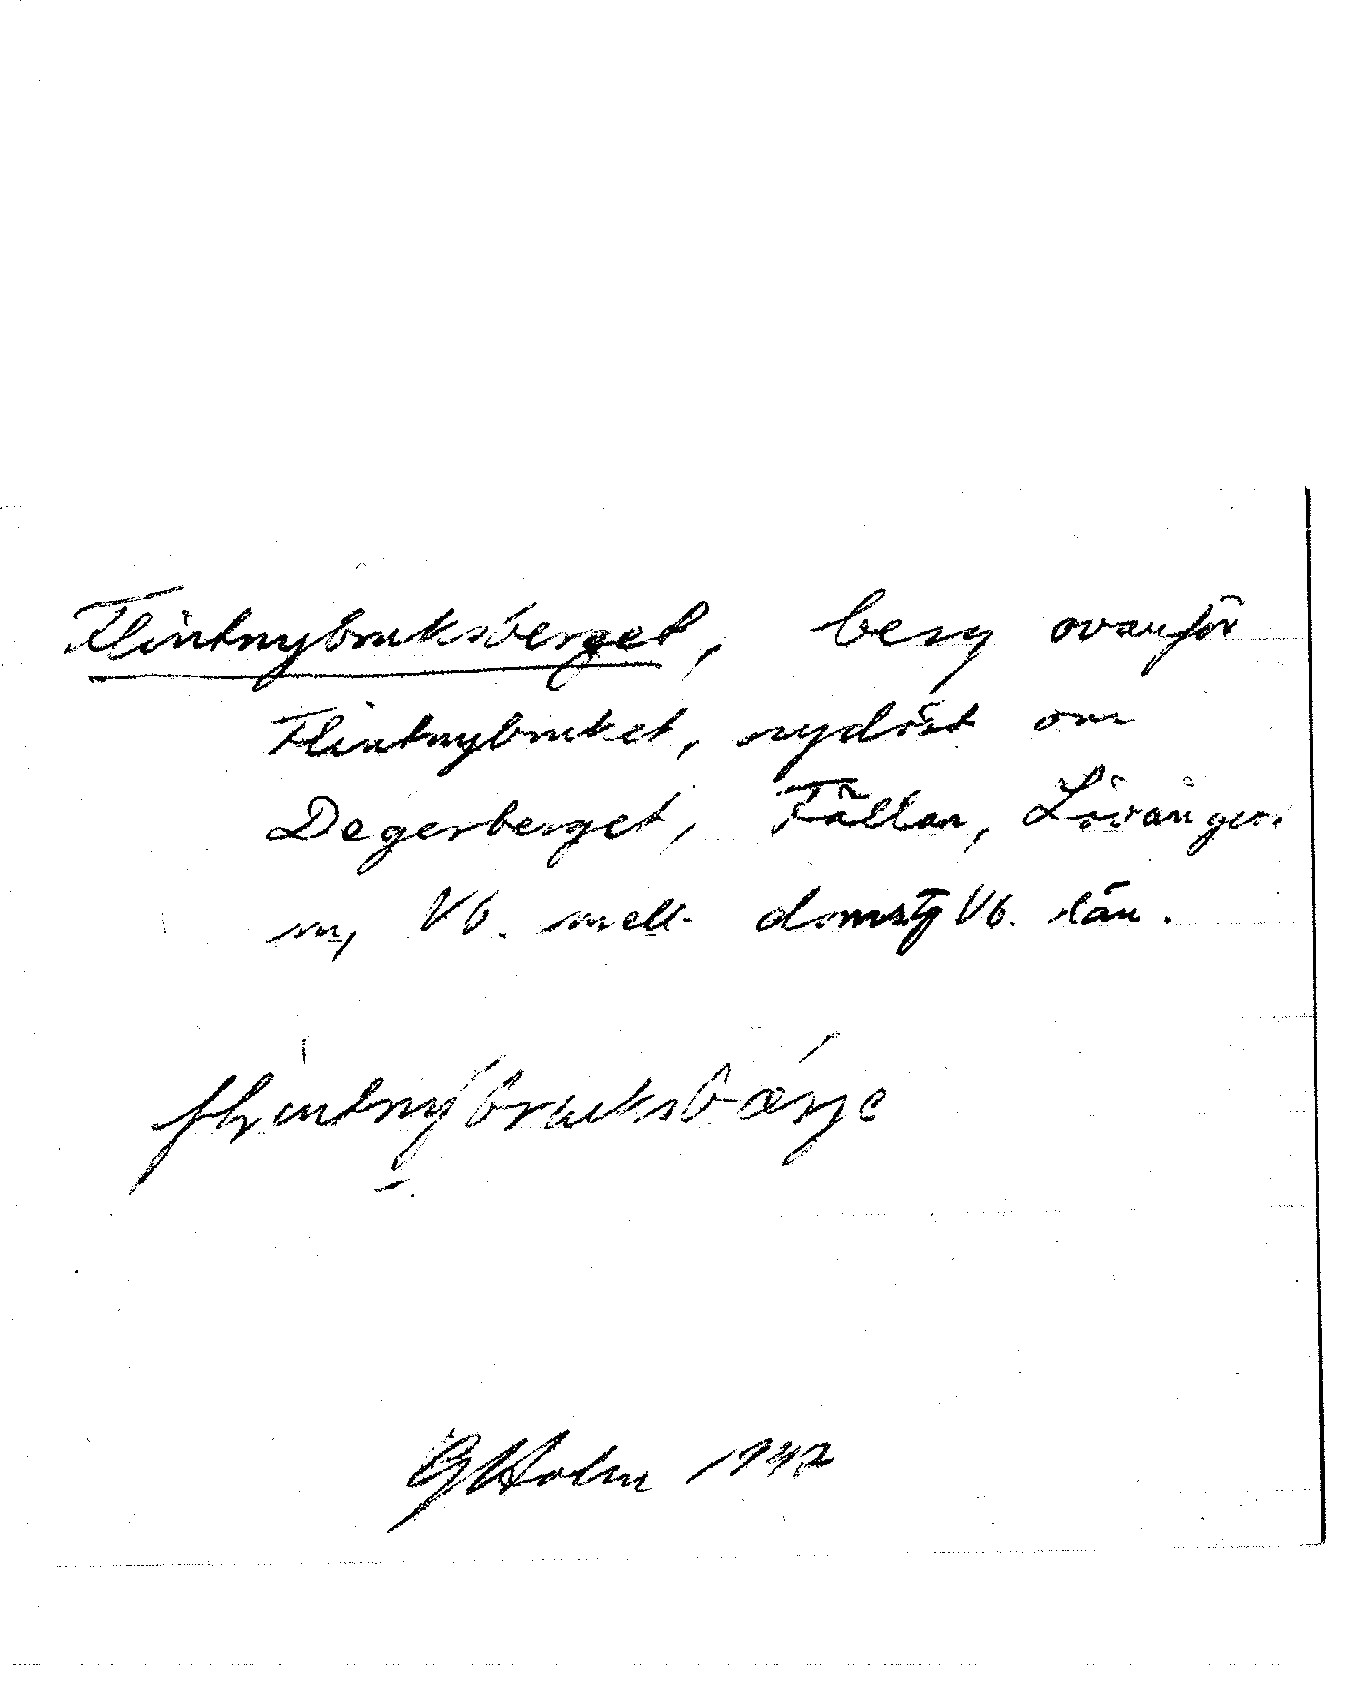 Flintnybruksberget, berg ovanför
Flintnybruket, sydöst om
Degerberget, Fällan, Lövångers
sn, Vb. mell. domsg Vb. län.
flintnybruksbærje
GHolm 1942